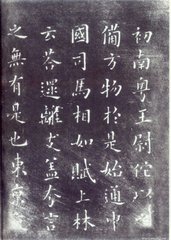 初南粤王尉佗以
備方物於是始通中
國司馬相如賦上林
云荅遝離支蓋夸言
之無有是也東京